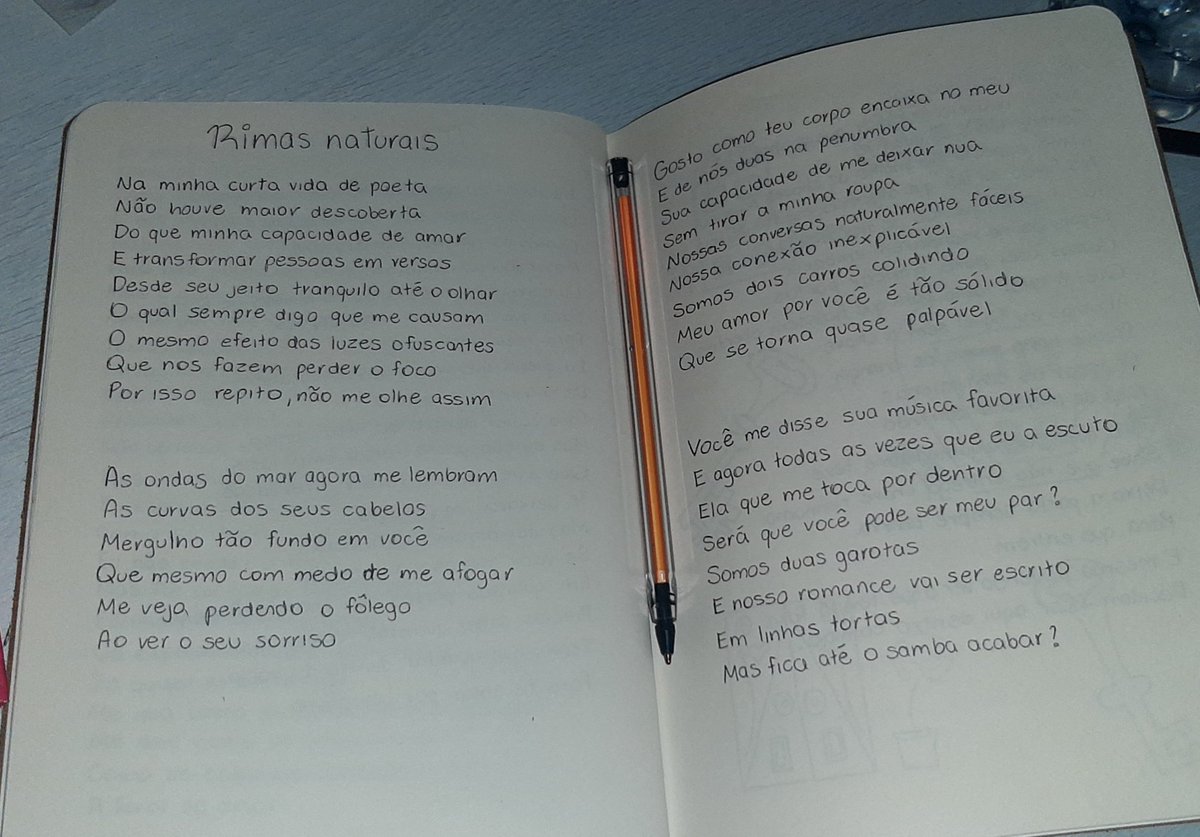 Rimas naturais
Na minha curta vida de poeta
Não houve maior descoberta
Do que minha capacidade de amar
E transformar pessoas em versos
Desde seu jeito tranquilo até o olhar
O qual sempre digo que me causam
O mesmo efeito das luzes ofuscantes
Que nos fazem perder o foco
Por isso repito, não me olhe assim
As ondas do mar agora me lembram
As curvas dos seus cabelos
Mergulho tão fundo em você
Que mesmo com medo de me afogar
Me vejo perdendo o fôlego
Ao ver o seu sorriso
Gosto como teu corpo encaixa no meu
E de nós duas na penumbra
Sua capacidade de me deixar nua
Sem tirar a minha roupa
Nossas conversas naturalmente fáceis
Nossa conexão inexplicável
Somos dois carros colidindo
Meu amor por você é tão sólido
Que se torna quase palpável
Você me disse sua música favorita
E agora todas as vezes que eu a escuto
Ela que me toca por dentro
Será que você pode ser meu par?
Somos duas garotas
E nosso romance vai ser escrito
Em linhas tortas
Mas fica até o samba acabar?